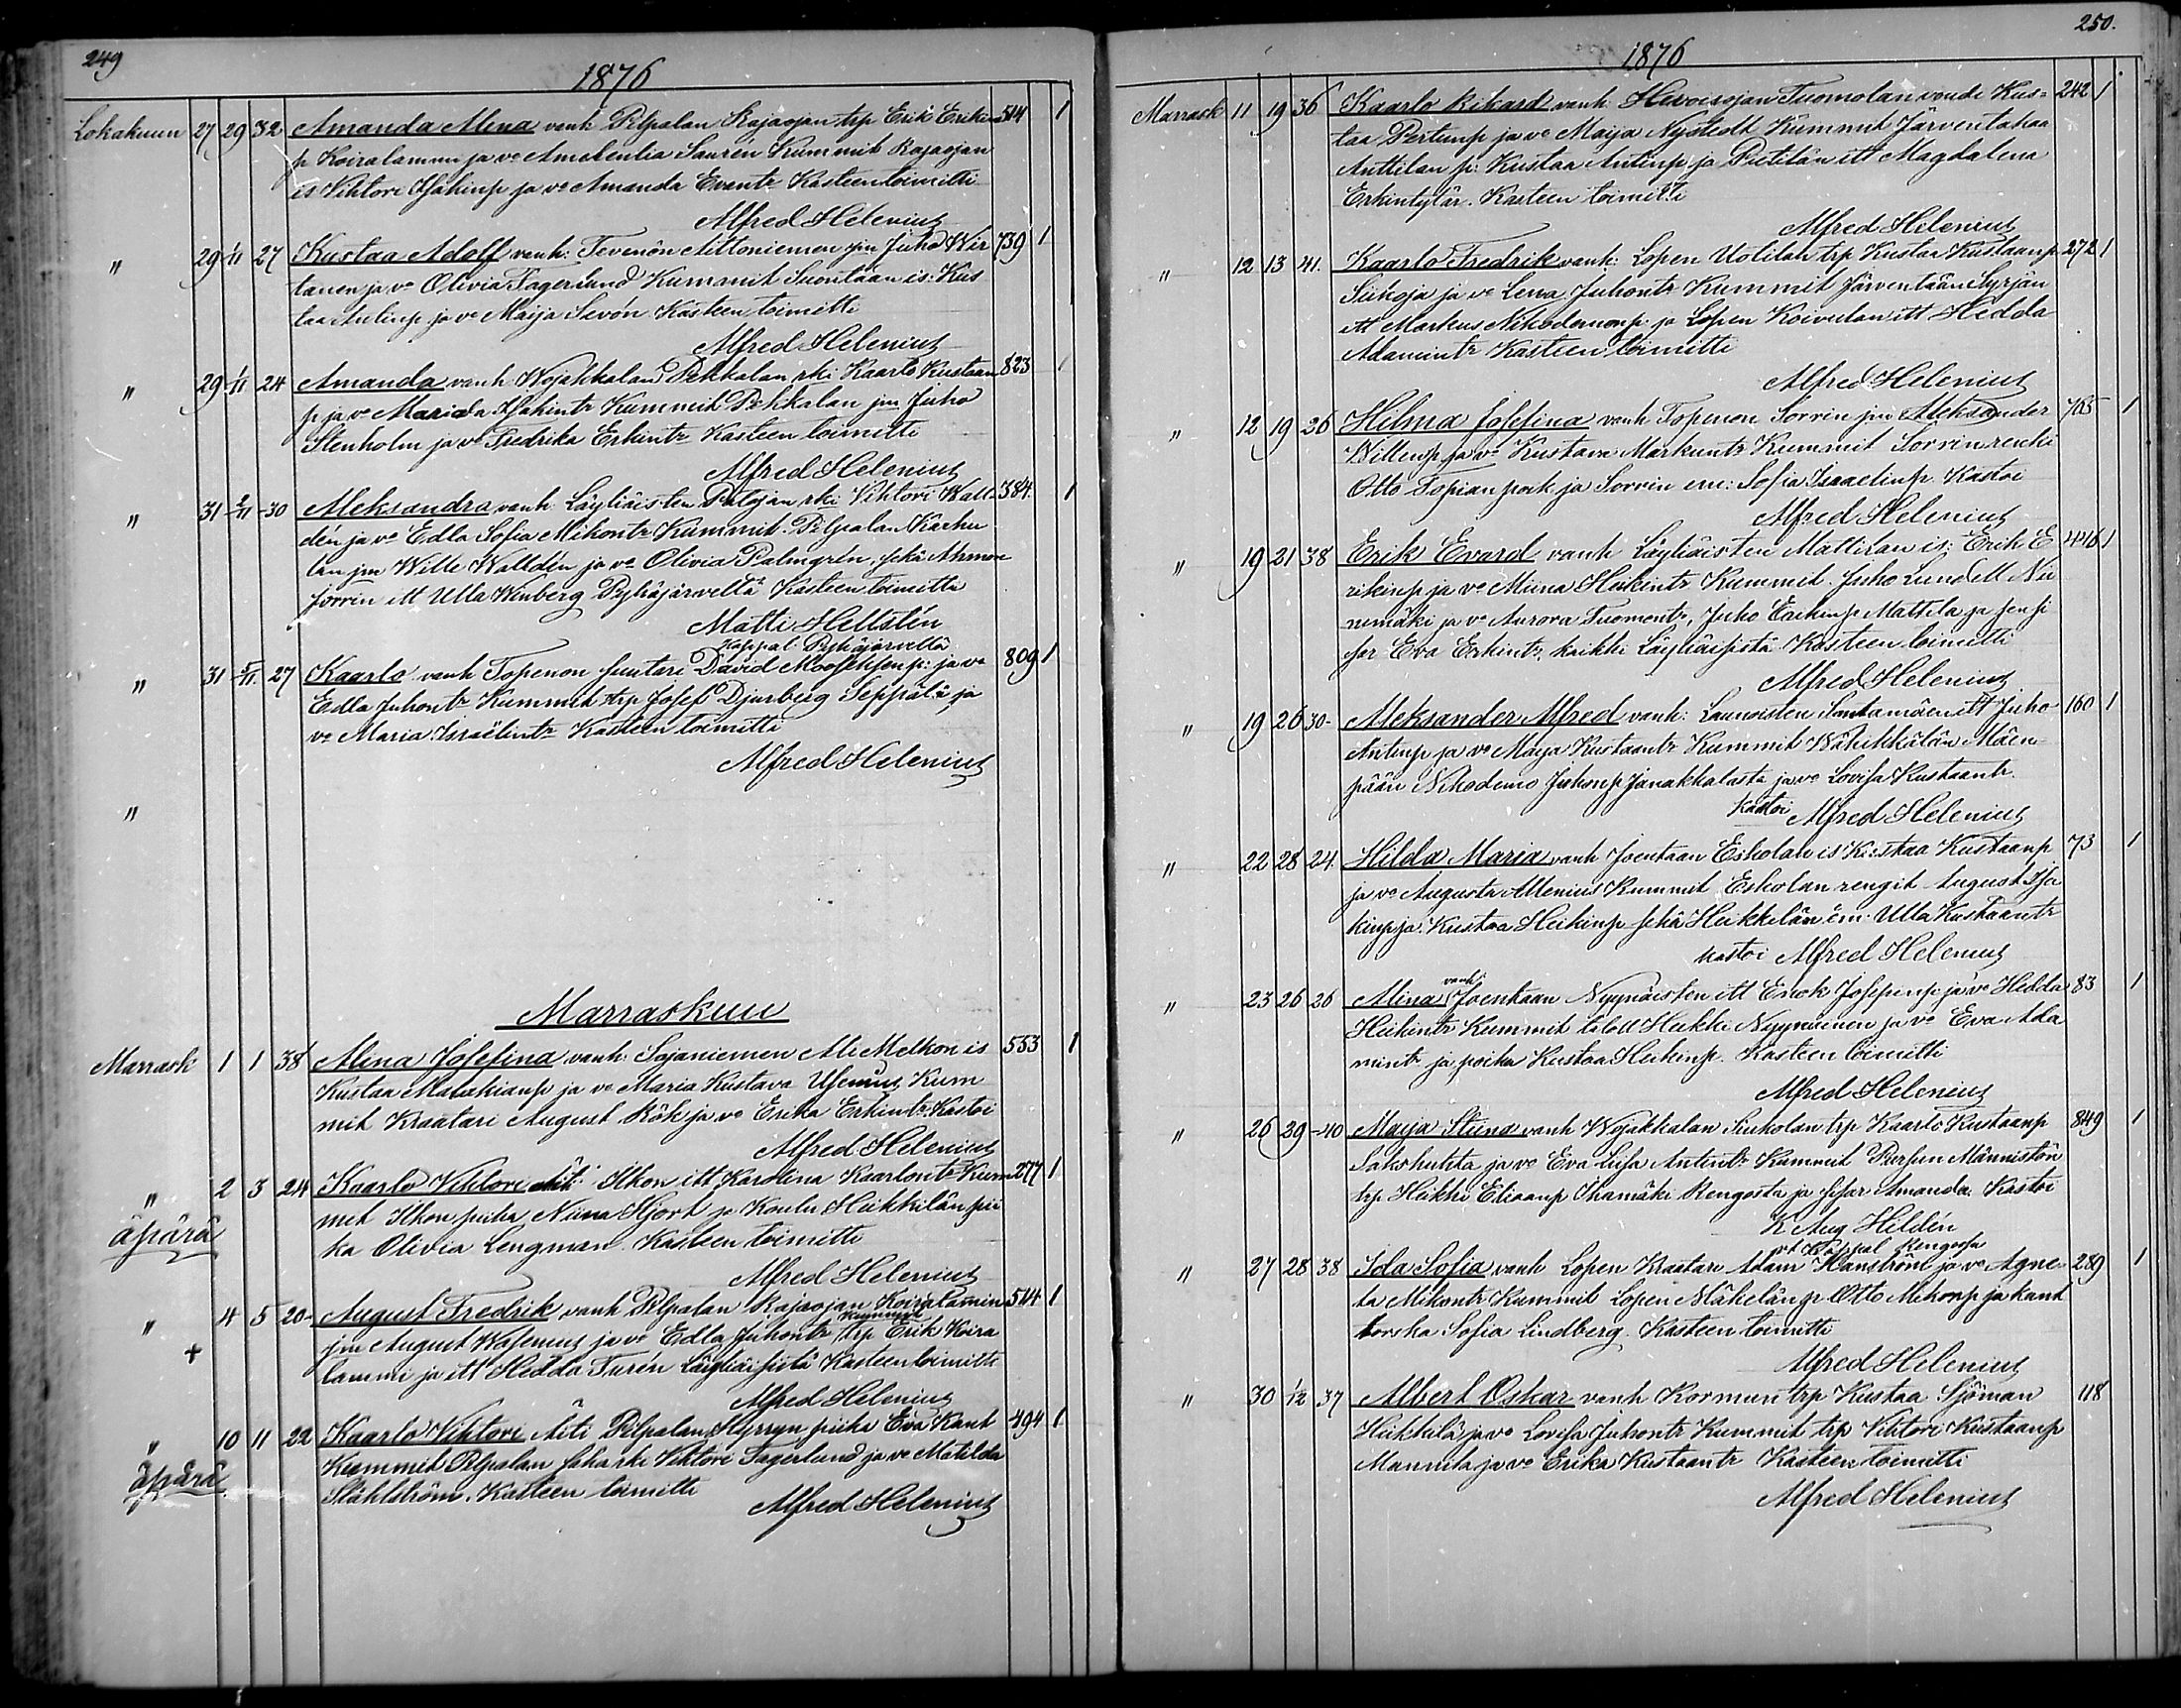 249
1876
Lokakuun 27 29 32 Amanda Alina vanh Pilpalan Rajaojan trp Erik Erikin 514 1
p Koiralammi ja vo Amalentia Saurén Kummit Rajaojan
is Vihtori Isakinp ja vo Amanda Evantr Kasteen toimitti
Alfred Helenius
" 29 1/11 27 Kustaa Adolf vanh: Tevenön Aittoniemen jm Juho Wir 739 1
tanen ja vo Olivia Fagerlund Kummit Suontaan is: Kus
taa Antinp ja vo Maija Savón Kasteen toimitti
Alfred Helenius
" 29 1/11 24 Amanda vanh Wojakkalan Pekkalan rki Kaarlo Kustaan 823 1
p ja vo Mariada Isakintr Kummit Pekkalan jm Juho
Stenholm ja vo Fredrika Erkintr Kasteen toimitti
Alfred Helenius
" 31 2/11 30 Aleksandra vanh Läyliäisten Patojan rki Vihtori Wall 384 1
dén ja vo Edla Sofia Mikontr Kummit. Pilpalan Karhu
lan jm Wille Walldén ja vo Olivia Palmgrén, sekä Ahmon
sorrin itt Ulla Winberg Pyhäjärveltä Kasteen toimitti
Matti Hellstén
kappal. Pyhäjärvellä
" 31 5/11 27 Kaarlo vanh Topenon suutari David Mooseksenp: ja vo 809 1
Edla Juhontr Kummit trp Josef Djurberg Seppälä ja
vo Maria Israelintr Kasteen toimitti
Alfred Helenius
"
Marraskuu
Marrask 1 1 38 Alina Josefina vanh: Sajaniemen Ali Melkon is 553 1
Kustaa Malakianp ja vo Maria Kustava Usenius Kum
mit Kraatari August Rök ja vo Erika Erkintr Kastoi
Alfred Helenius
" 2 3 24 Kaarlo Vihtori äit: Ilkon itt Karolina Kaarlontr Kum 277 1
äpärä mit Ilkon piika Niina Hjort ja Koulu Heikkilän pii
ka Olivia Lengman. Kasteen toimitti
Alfred Helenius
" 4 5 20 August Fredrik vanh Pilpalan Rajaojan Koiralammin 514 1
+ jm August Wasenius ja vo Edla Juhontr Kummit trp Erik Koira
lammi ja itt Hedda Turén Läyliäisistä Kasteen toimitti
Alfred Helenius
" 10 11 22 Kaarlo Vihtori Äiti Pilpalan Hyrryn piika Eva Kant 494 1
äpärä Kummit Pilpalan saharki Vihtori Fagerlund ja vo Matilda
Ståhlström. Kasteen toimitti
Alfred Helenius
250.
1876
Marrask 11 19 36 Kaarlo Rikard vanh Hevoisojan Tuomolan voudi Kus= 242 1
taa Pertunp ja vo Maija Nystedt Kummit Järventakaa
Anttilan p: Kustaa Antinp ja Pietilän itt Magdalena
Erkintytär. Kasteen toimitti
Alfred Helenius
" 12 13 41. Kaarlo Fredrik vanh: Lopen Uotilan trp Kustaa Kustaanp 272 1
Siikoja ja vo Lena Juhontr Kummit Järventään Syrjän
itt Markus Nikodemonp: ja Lopen Koivulan itt Hedda
Adamintr Kasteen toimitti
Alfred Helenius
" 12 19 26 Hilma Josefina vanh Topenon Sorrin jm Aleksander 765 1
Willenp ja vo Kustava Markuntr Kummit Sorrin renki
Otto Topian poik ja Sorrin em: Sofia Israelinp. Kastoi
Alfred Helenius
" 19 21 38 Erik Evard vanh Läyliäisten Mattilan is: Erik E 446 1
rikinp ja vo Miina Heikintr Kummit. Juho Lundell Nii
nimäki ja vo Aurora Tuomontr, Juho Erikinp Mattila ja sensi
sar Eva Erkintr, kaikki Läyliäisistä Kasteen toimitti
Alfred Helenius
" 19 26 30 Aleksander Alfred vanh: Launoisten Santamäen itt Juho 160 1
Antinp ja vo Maija Kustaantr Kummit Wähikkälän Mäen
pään Nikodemo Juhonp Janakkalasta ja vo Lovisa Kustaantr.
Kastoi Alfred Helenius
" 22 28 24. Hilda Maria vanh Joentaan Eskolan is Kustaa Kustaanp 73 1
ja vo Augusta Allenius Kummit Eskolan rengit August Isa
kinp ja Kustaa Heikinp sekä Heikkilän em. Ulla Kustaantr
kastoi Alfred Helenius
" 23 26 26 Alina vanh Joentaan Nyynäisten itt Enok Josepinp: ja vo Hedda 83 1
Heikintr Kummit taloll Heikki Nyynäinen ja vo Eva Ada
mintr ja poika Kustaa Heikinp. Kasteen toimitti
Alfred Helenius
" 26 29 40 Maija Stiina vanh Wojakkalan Siukolan trp Kaarlo Kustaanp 849 1
Sakshuhta ja vo Eva Liisa Antintr Kummit Pursun Männistön
trp Heikki Eliaanp Ihamäki Rengosta ja sisar Amanda. Kastoi
K Aug Heldén
vt Kappal Rengossa
" 27 28 38 Ida Sofia vanh Lopen Kraatari Adam Hanström ja vo Agne- 289 1
ta Mikontr Kummit Lopen Mäkelän p: Otto Mikonp ja kant
torska Sofia Lindberg. Kasteen toimitti
Alfred Helenius
" 30 1/12 37 Albert Oskar vanh Kormun trp Kustaa Sjöman 118
Heikkilä ja vo Lovisa Juhontr Kummit trp Vihtori Kustaanp
Mannila ja vo Erika Kustaantr Kasteen toimitti
Alfred Helenius